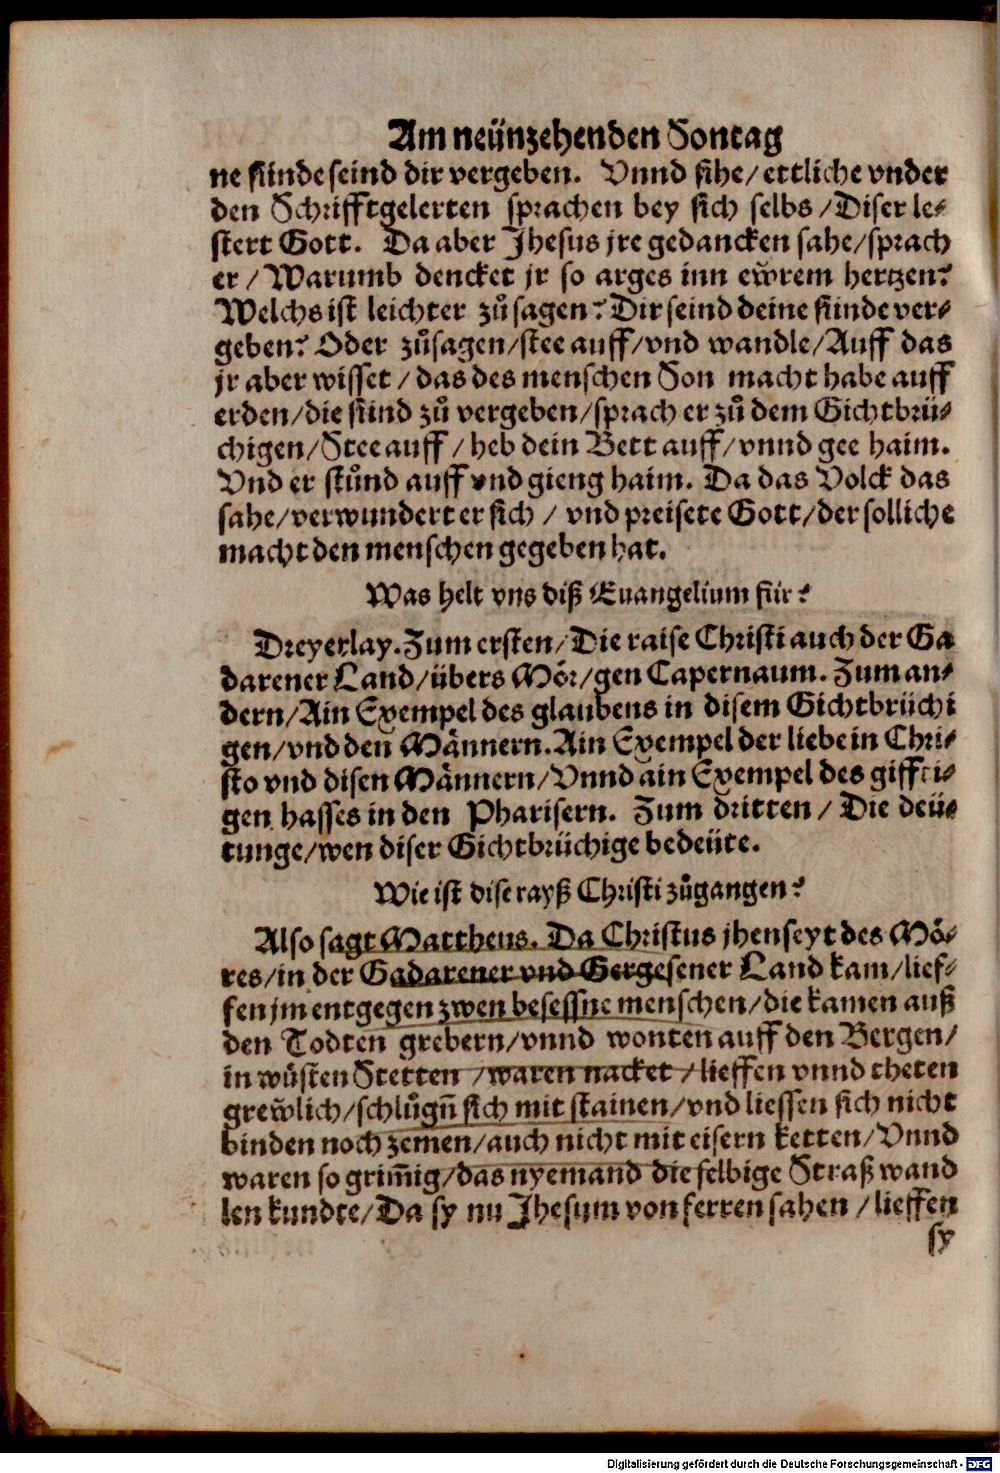 Am neünzehenden Sontag
ne sünde seind dir vergeben. Vnnd sihe/ ettliche vnder
den Schrifftgelerten sprachen bey sich selbs/ Diser le⸗
stert Gott. Da aber Jhesus jre gedancken sahe/ sprach
er/ Warumb dencket jr so arges inn ew̃rem hertzen?
Welchs ist leichter zůsagen? Dir seind deine sünde ver⸗
geben? Oder zůsagen/ stee auff/ vnd wandle/ Auff das
jr aber wisset/ das des menschen Son macht habe auff
erden/ die sünd zů vergeben/ sprach er zů dem Gichtbrü⸗
chigen/ Stee auff/ heb dein Bett auff/ vnnd gee haim.
Vnd er stůnd auff vnd gieng haim. Da das Volck das
sahe/ verwundert er sich/ vnd preisete Gott/ der solliche
macht den menschen gegeben hat.
Was helt vns diß Euangelium für?
Dreyerlay. Zum ersten/ Die raise Christi auch der Ga
darener Land/ übers Mör/ gen Capernaum. Zum an⸗
dern/ Ain Exempel des glaubens in disem Gichtbrüchi
gen/ vnd den Männern. Ain Exempel der liebe in Chri⸗
sto vnd disen Männern/ Vnnd ain Exempel des gifftі⸗
gen hasses in den Pharisern. Zum dritten/ Die deü⸗
tunge/ wen diser Gichtbrüchige bedeüte.
Wie ist dise rayß Christi zůgangen?
Also sagt Mattheus. Da Christus jhenseyt des Mö⸗
res/ in der Gadarener vnd Gergesener Land kam/ lief⸗
fen jm entgegen zwen besessne menschen/ die kamen auß
den Todten grebern/ vnnd wonten auff den Bergen/
in wůsten Stetten/ waren nacket/ lieffen vnnd theten
grew̃lich/ schlůgñ sich mit stainen/ vnd liessen sich nicht
binden noch zemen/ auch nicht mit eisern ketten/ Vnnd
waren so grim̃ig/ das nyemand die selbige Straß wand
len kundte/ Da sy nu Jhesum von ferren sahen/ lieffen
sy
Digitalisierung gefördert durch die Deutsche Forschungsgemeinschaft - DFG